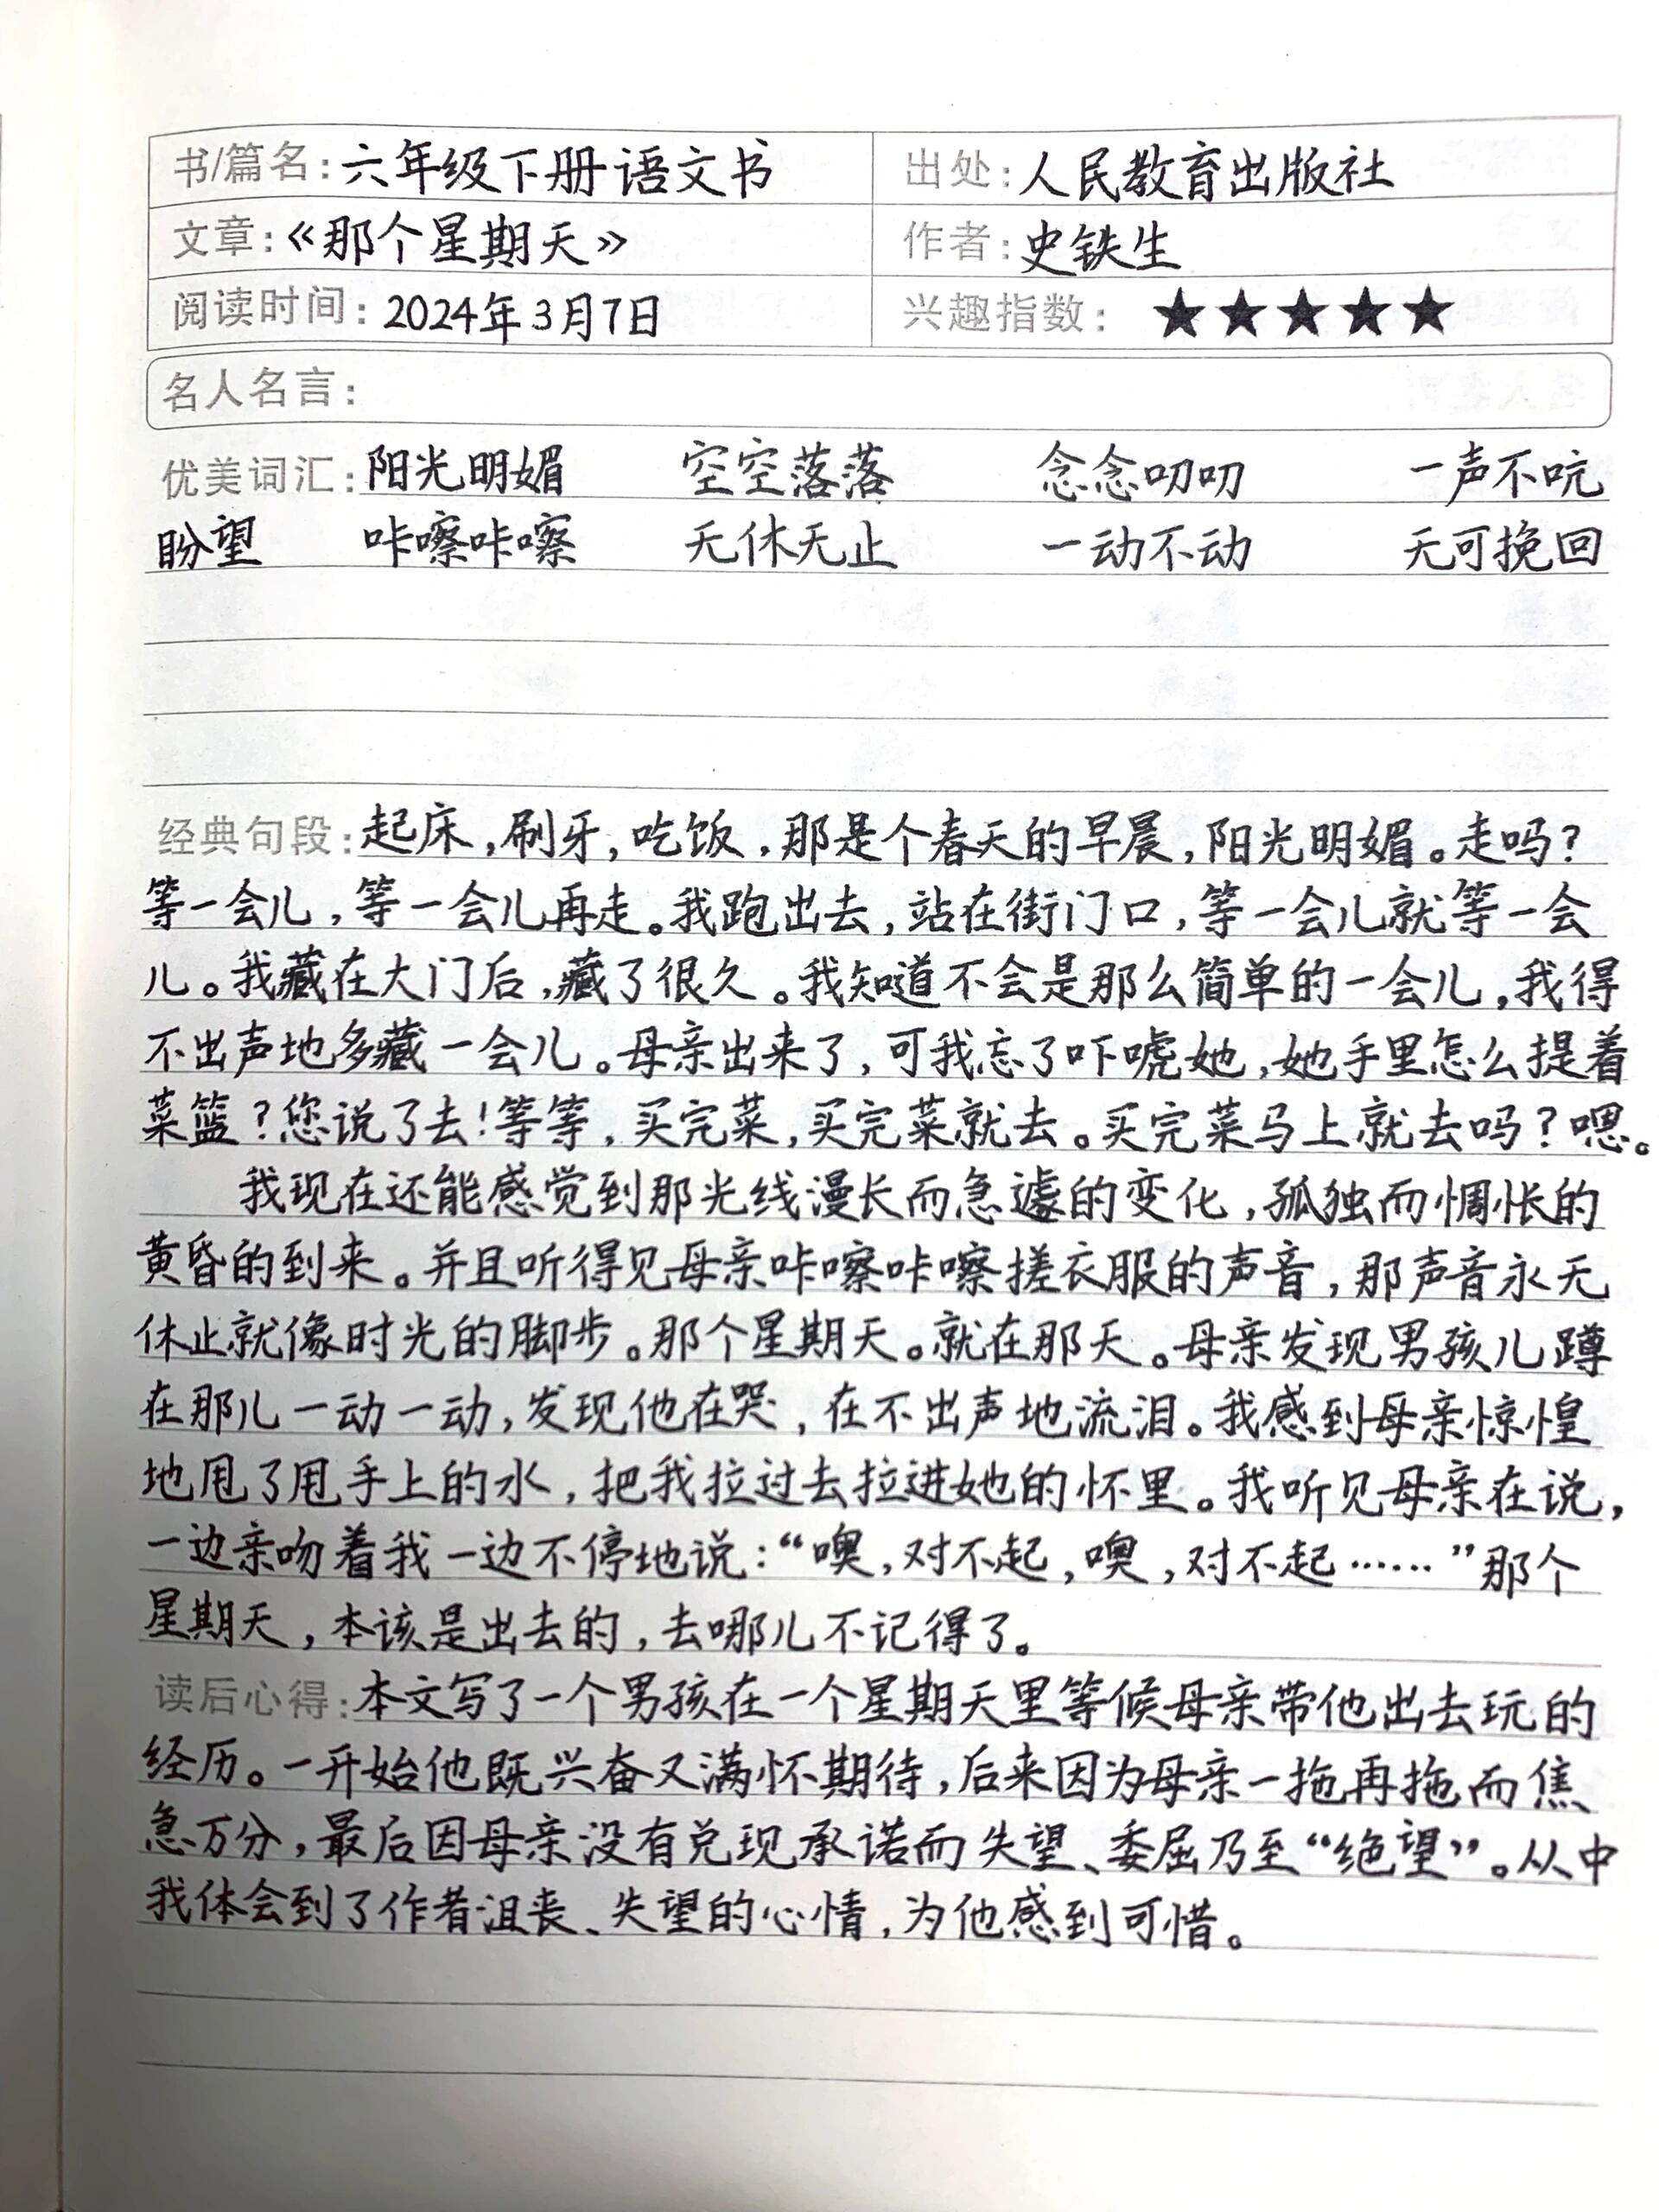 书/篇名：六年级下册语文书 出处：人民教育出版社
文章：《那个星期天》 作者：史铁生
阅读时间：2024年3月7日 兴趣指数：★★★★★
名人名言：
优美词汇：阳光明媚 空空落落 念念叨叨 一声不吭
盼望 咔嚓咔嚓 无休无止 一动不动 无可挽回
经典句段：起床，刷牙，吃饭，那是个春天的早晨，阳光明媚。走吗？
等一会儿，等一会儿再走。我跑出去，站在街门口，等一会儿就等一会
儿。我藏在大门后，藏了很久。我知道不会是那么简单的一会儿，我得
不出声地多藏一会儿。母亲出来了，可我忘了吓唬她，她手里怎么提着
菜篮？您说了去！等等，买完菜，买完菜就去。买完菜马上就去吗？嗯。
我现在还能感觉到那光线漫长而急遽的变化，孤独而惆怅的
黄昏的到来。并且听得见母亲咔嚓咔嚓搓衣服的声音，那声音永无
休止就像时光的脚步。那个星期天。就在那天。母亲发现男孩儿蹲
在那儿一动一动，发现他在哭，在不出声地流泪。我感到母亲惊惶
地甩了甩手上的水，把我拉过去拉进她的怀里。我听见母亲在说，
一边亲吻着我一边不停地说：“噢，对不起，噢，对不起……”那个
星期天，本该是出去的，去哪儿不记得了。
读后心得：本文写了一个男孩在一个星期天里等候母亲带他出去玩的
经历。一开始他既兴奋又满怀期待，后来因为母亲一拖再拖而焦
急万分，最后因母亲没有兑现承诺而失望、委屈乃至“绝望”。从中
我体会到了作者沮丧、失望的心情，为他感到可惜。